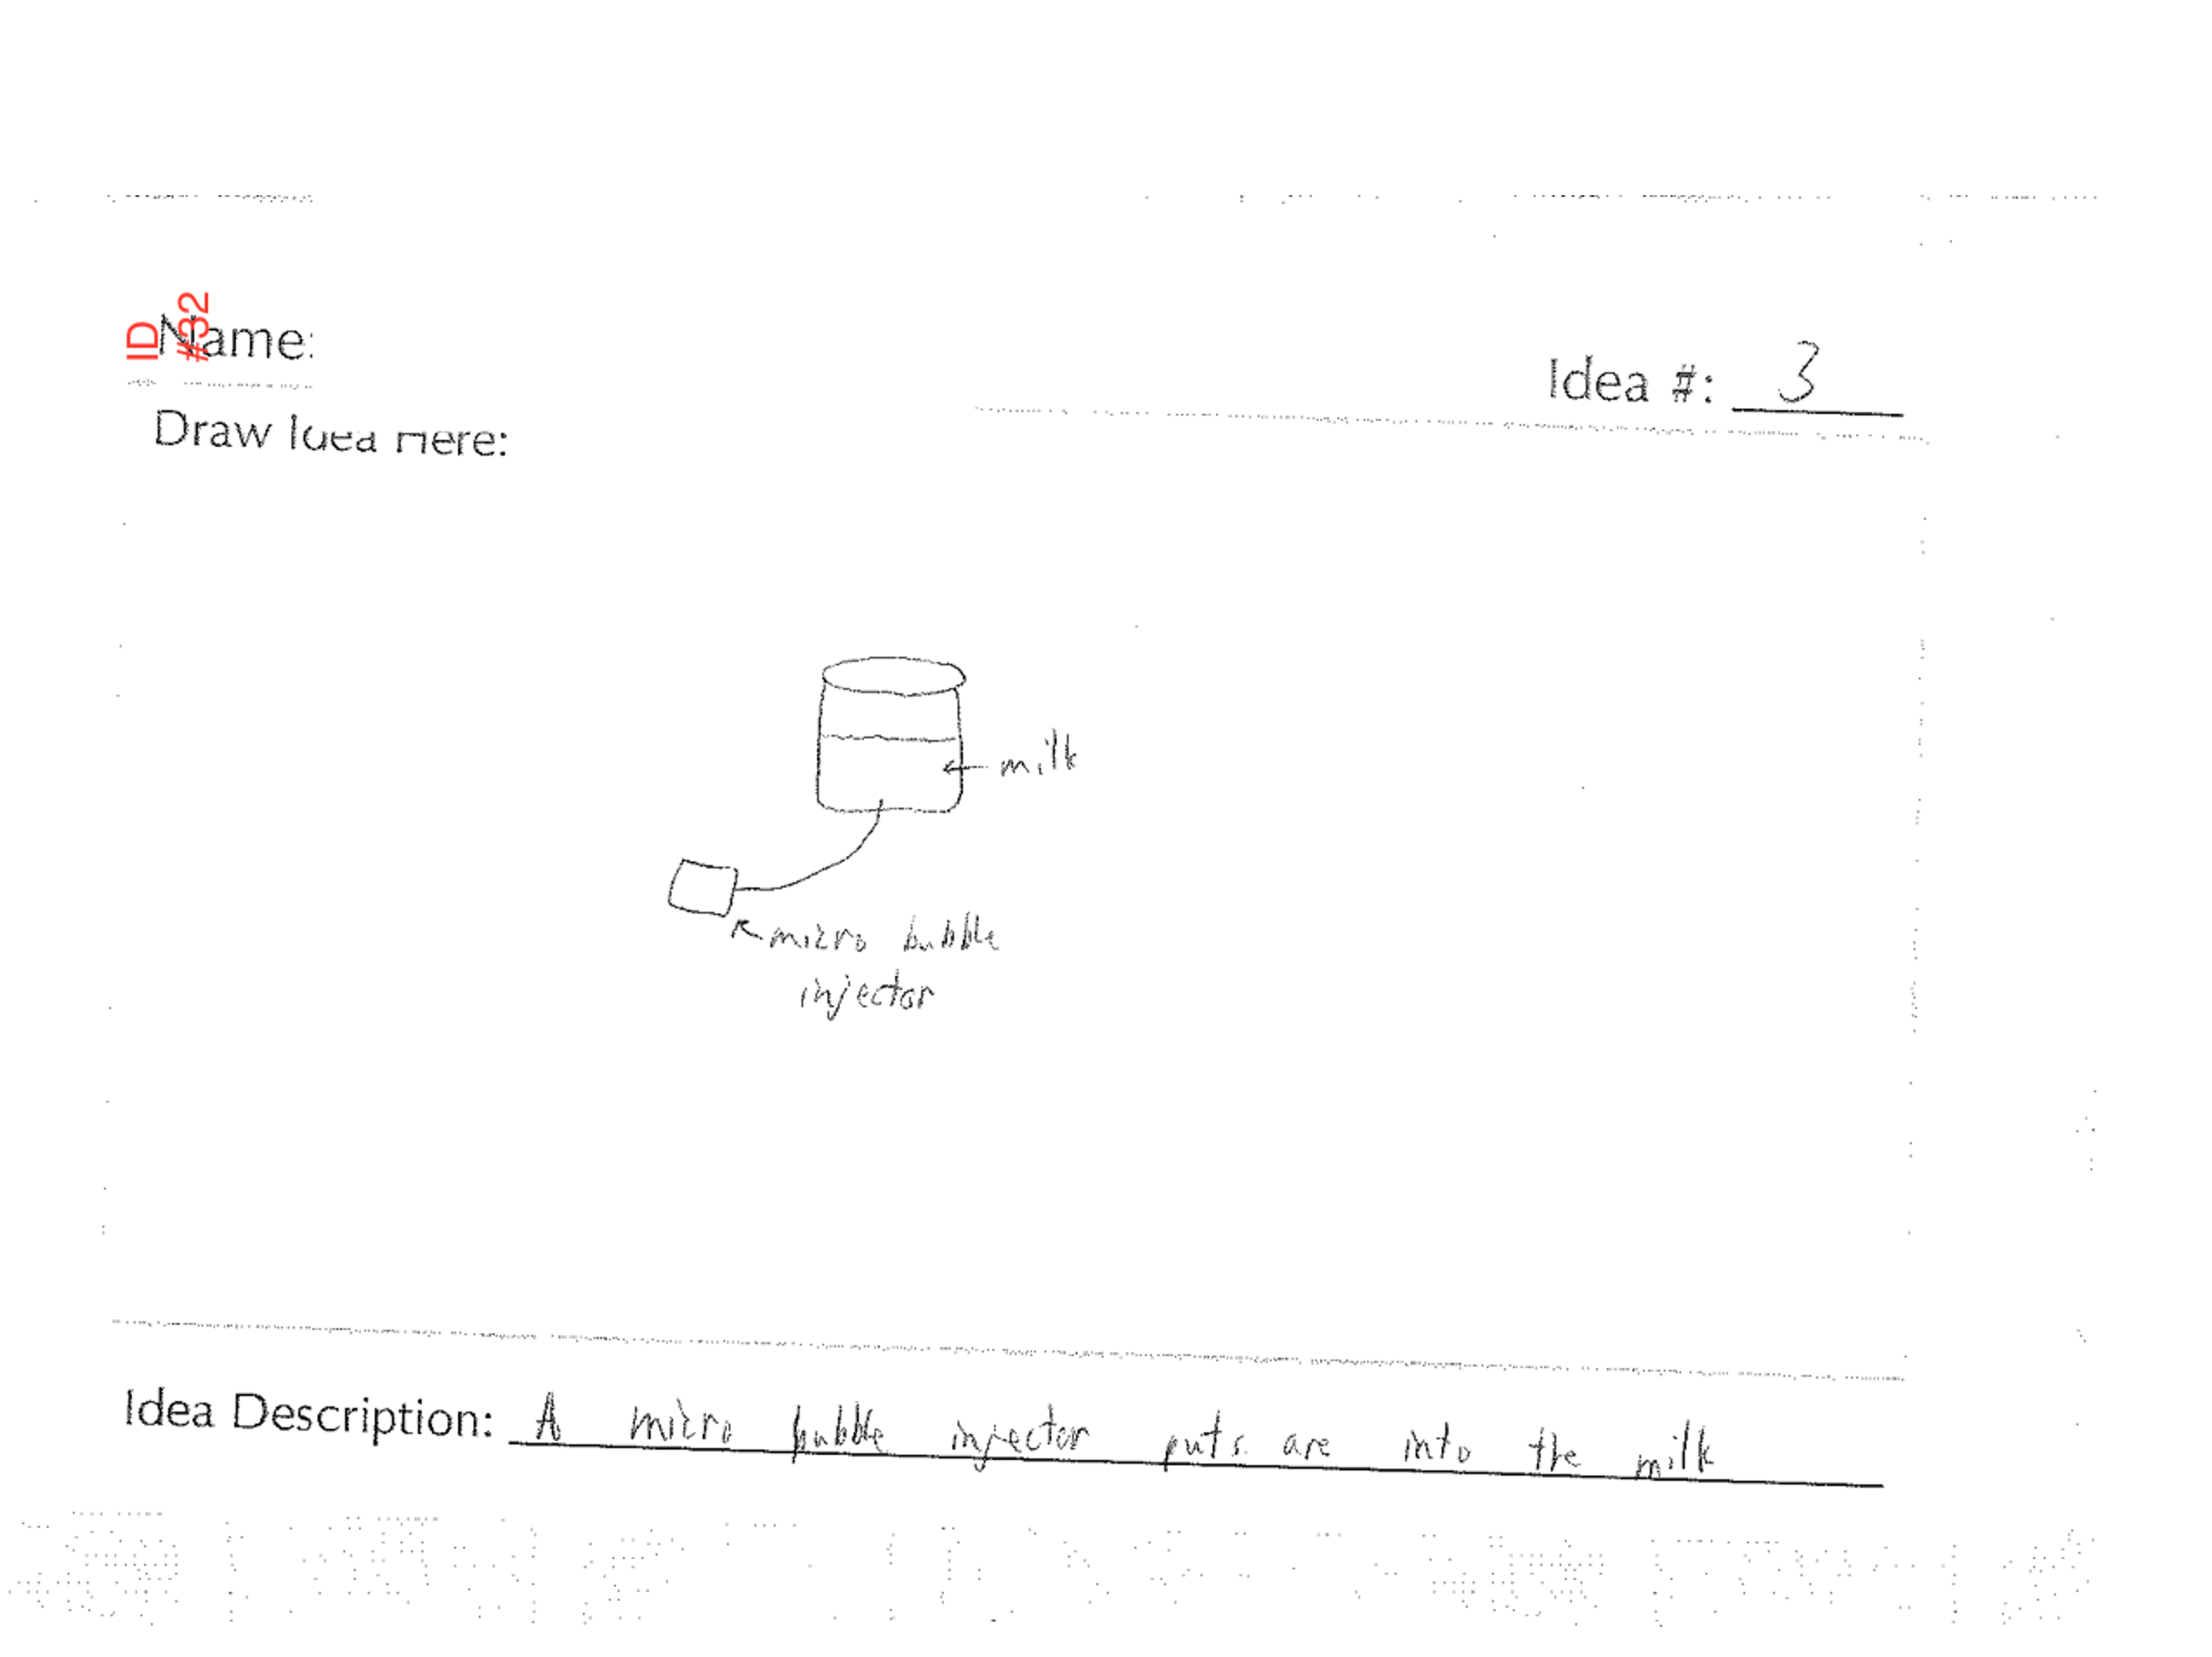 ID
#32
Name:
Idea #: 3
Draw Idea Here:
milk
micro bubble
injector
Idea Description: A micro bubble injector puts are into the milk